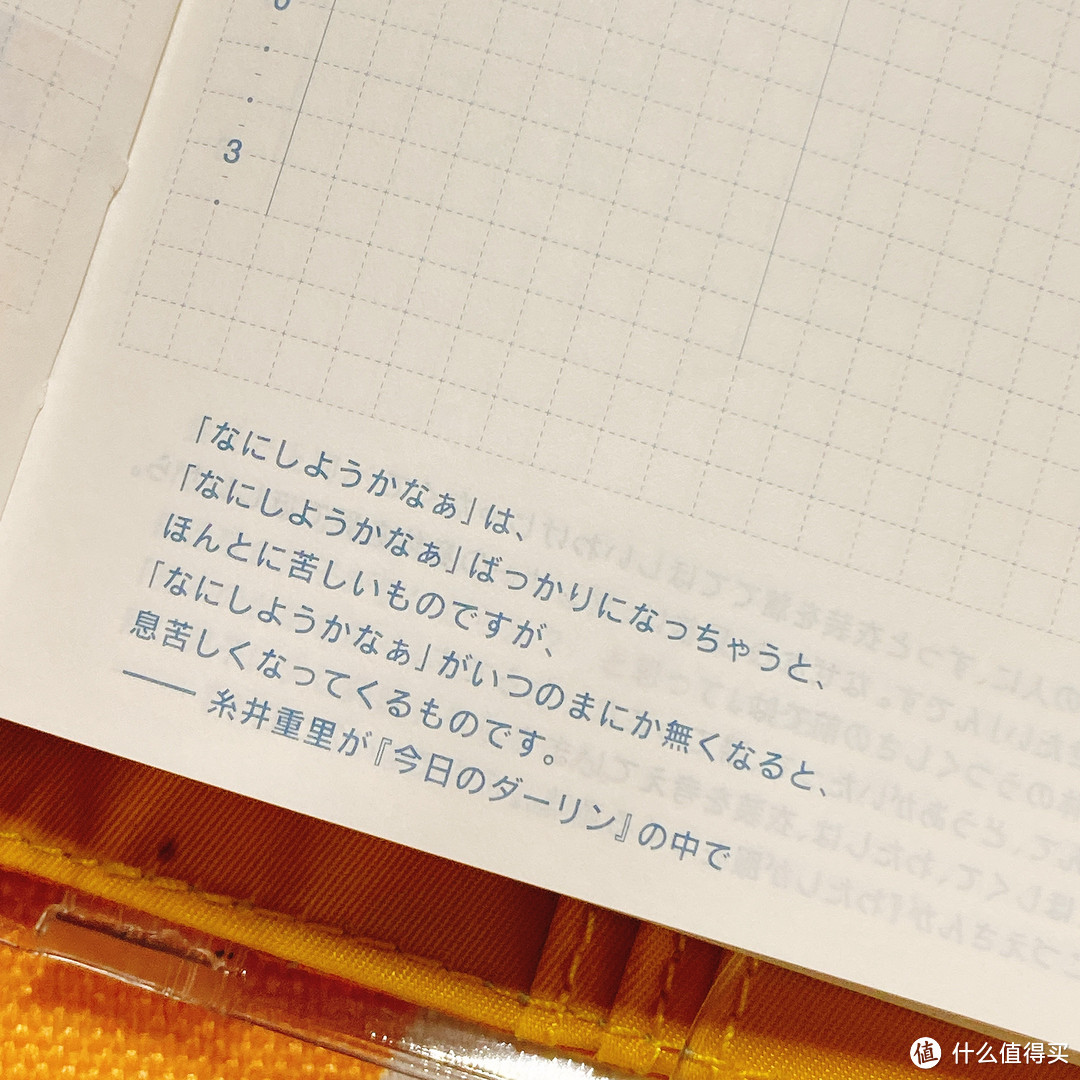 3
「なにしようかなぁ」は、
「なにしようかなぁ」ばっかりになっちゃうと、
ほんとに苦しいものですが、
「なにしようかなぁ」がいつのまにか無くなると、
息苦しくなってくるものです。
—— 糸井重里が『今日のダーリン』の中で
值 什么值得买